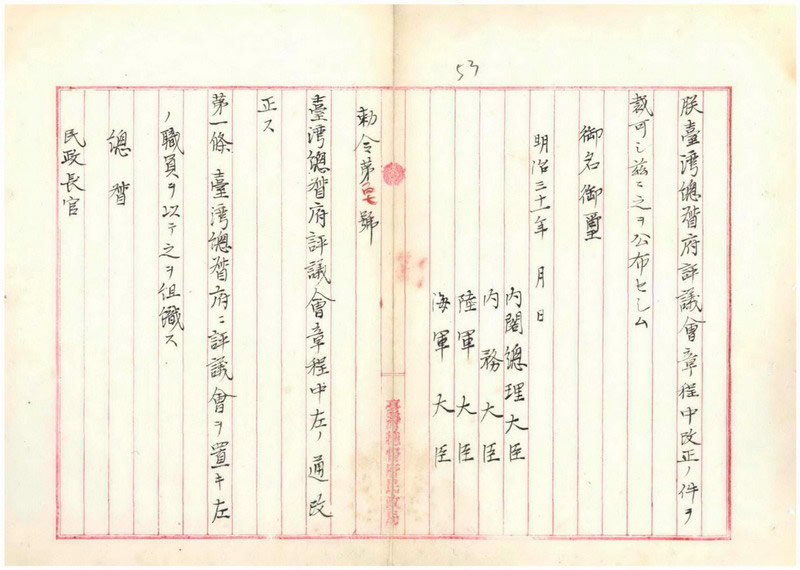 53
朕臺湾總督府評議會章程中改正ノ件ヲ
裁可シ茲ニ之ヲ公布セシム
御名御璽
明治三十一年 月 日
内閣總理大臣
内務大臣
陸軍大臣
海軍大臣
勅令第四七號
臺湾總督府評議會章程中左ノ通改
正ス
第一條 臺湾總督府ニ評議會ヲ置キ左
ノ職員ヲ以テ之ヲ組織ス
總督
民政長官
臺灣總督府民政局